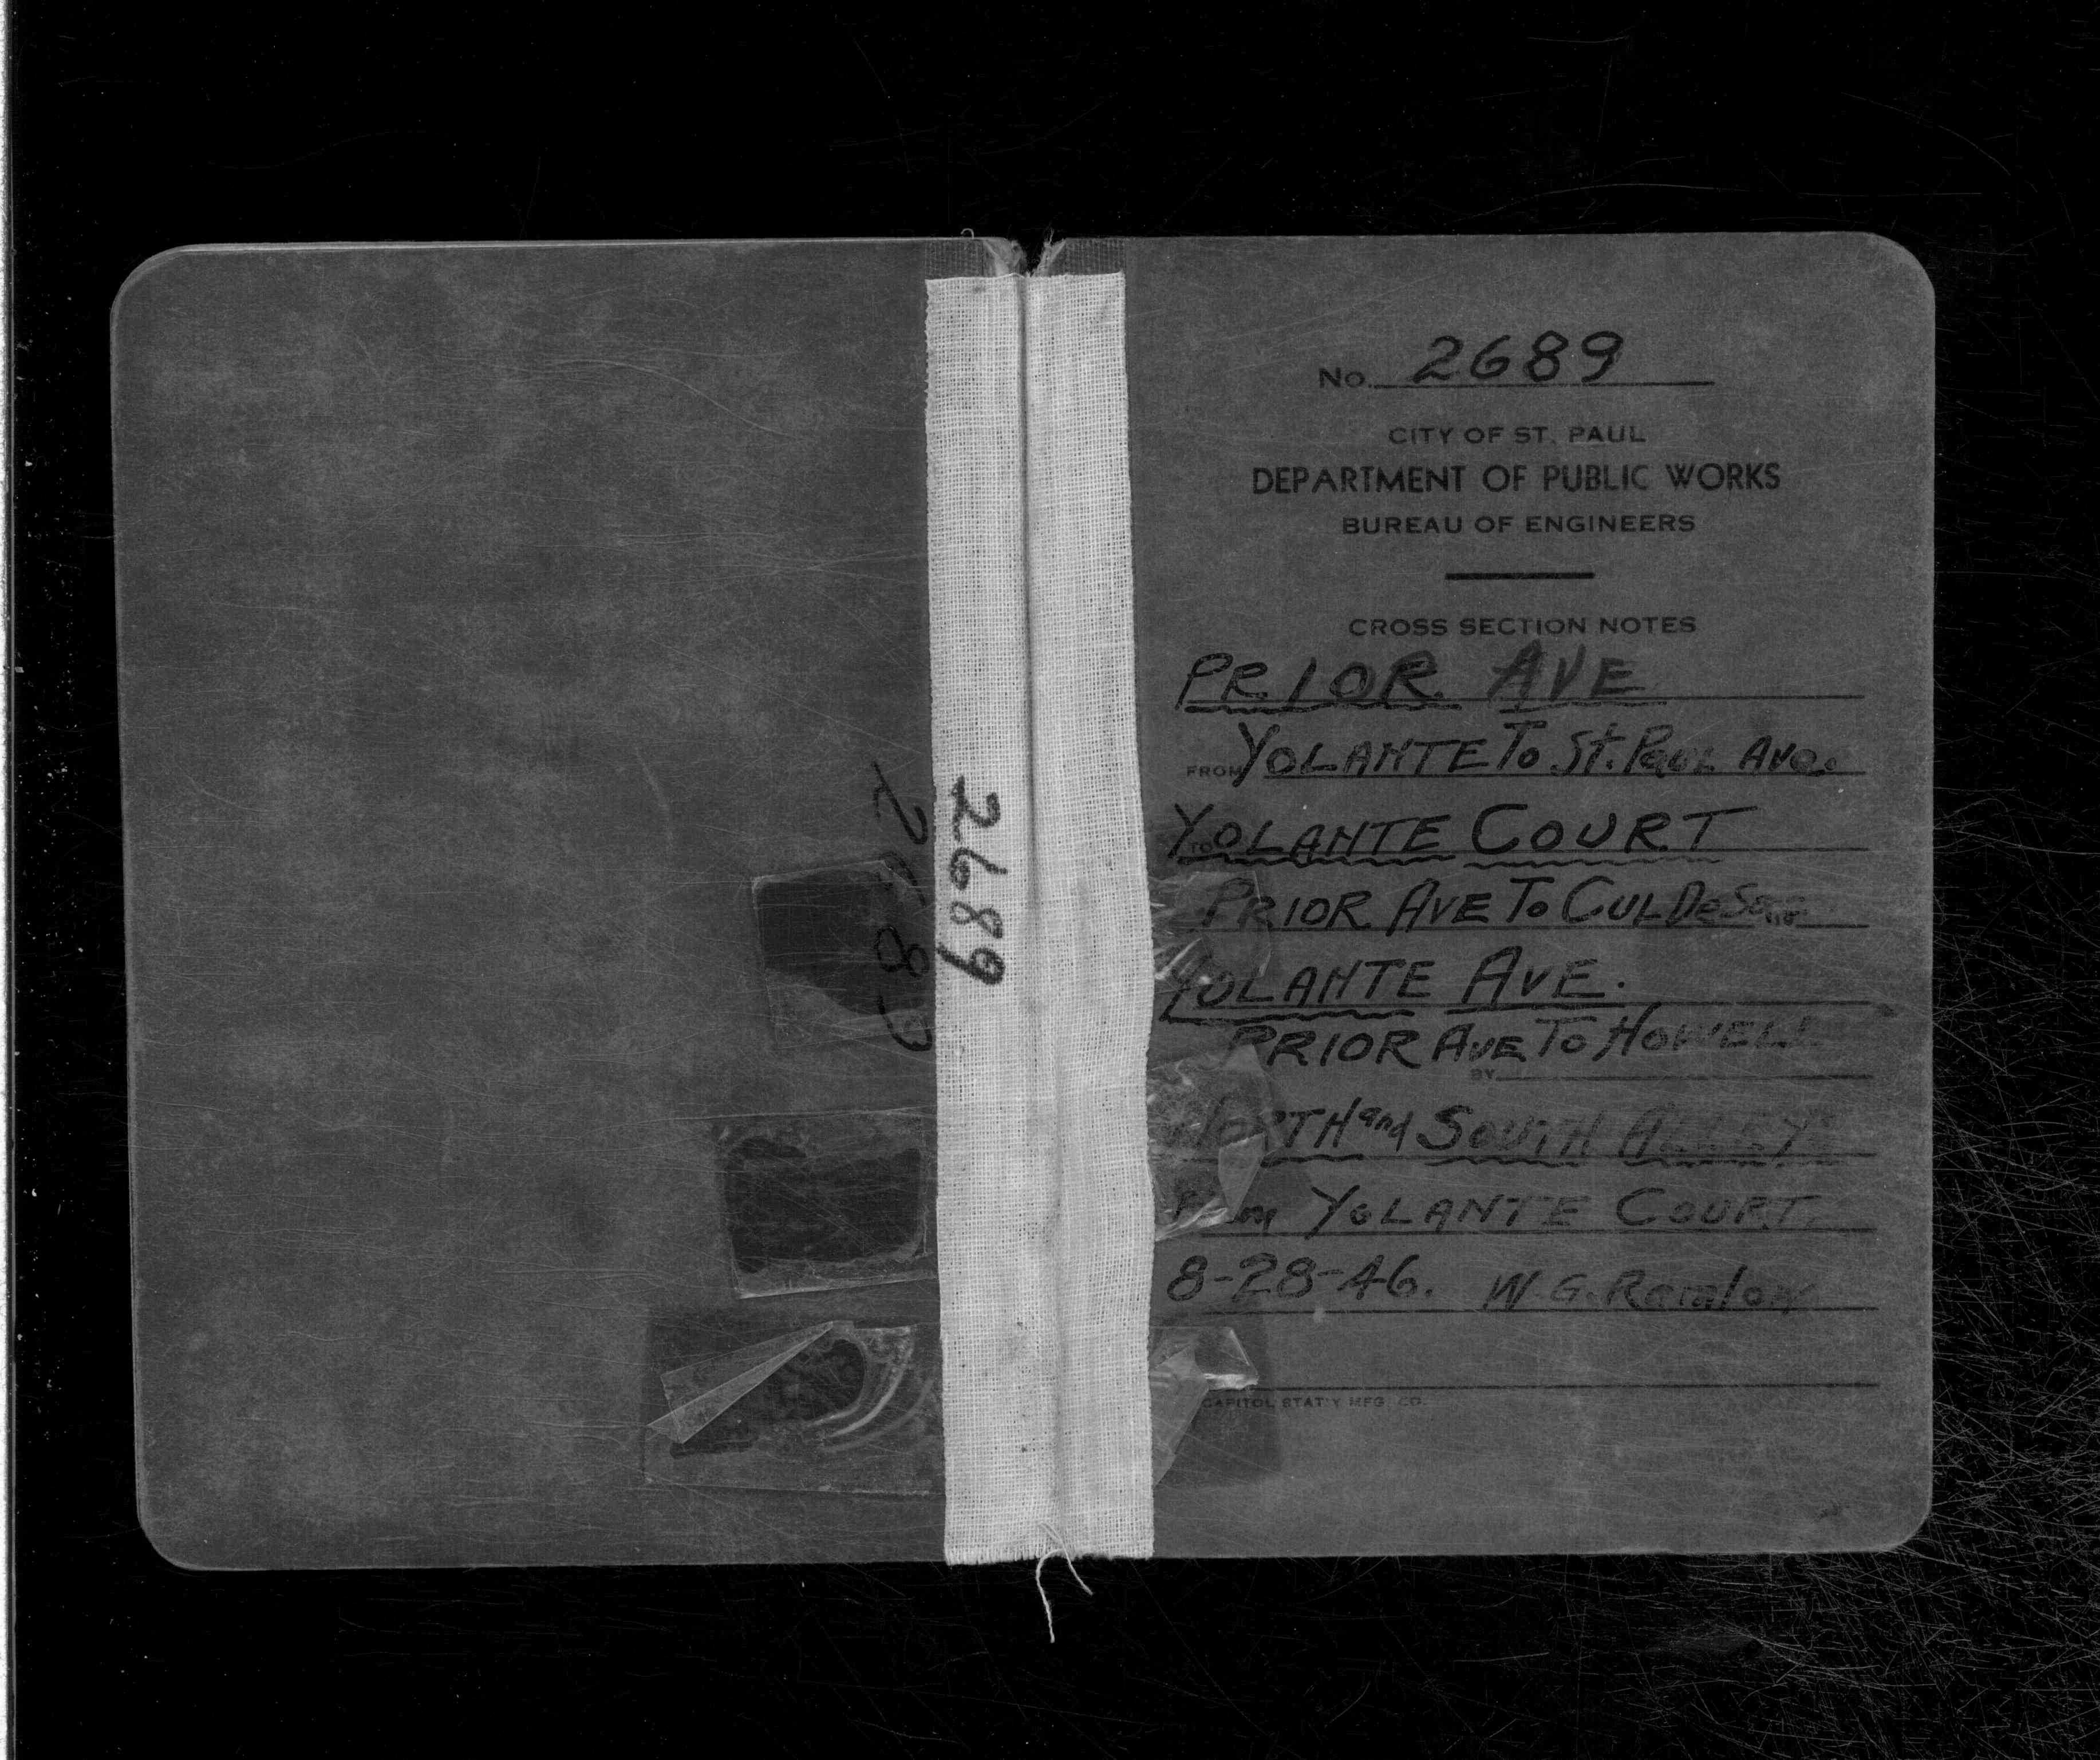 2689
2689
No. 2689
CITY OF ST. PAUL
DEPARTMENT OF PUBLIC WORKS
BUREAU OF ENGINEERS
CROSS SECTION NOTES
PRIOR AVE
FROM YOLANTE To St. PAUL AVE.
TO YOLANTE COURT
PRIOR AVE To CUL De Sac
YOLANTE AVE.
PRIOR AVE To HOWELL
BY
NORTH and SOUTH ALLEYS
From YOLANTE COURT.
8-28-46. W. G. Ramlow
CAPITOL STAT'Y MFG. CO.